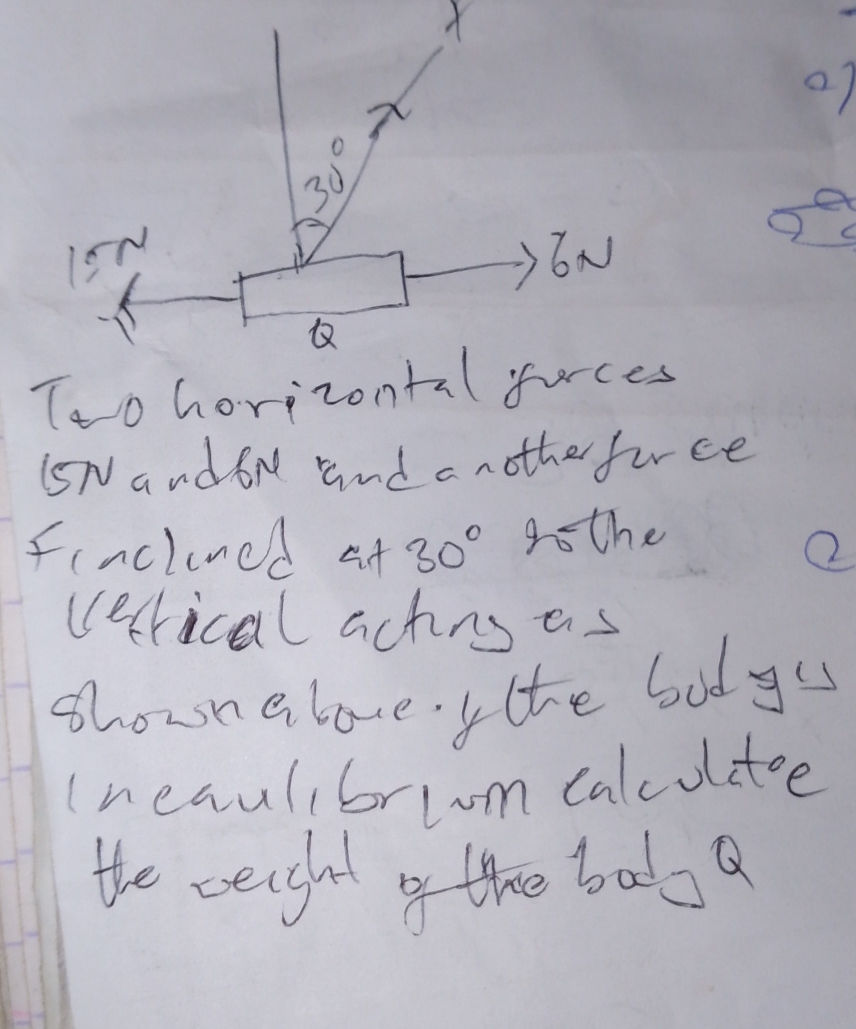 30°
15N
6N
Q
Two horizontal forces
15N and 6N and another force
F inclined at 30° to the
Vertical acting as
shown above. If the body is
in eaulibrium calculatoe
the weight of the body Q